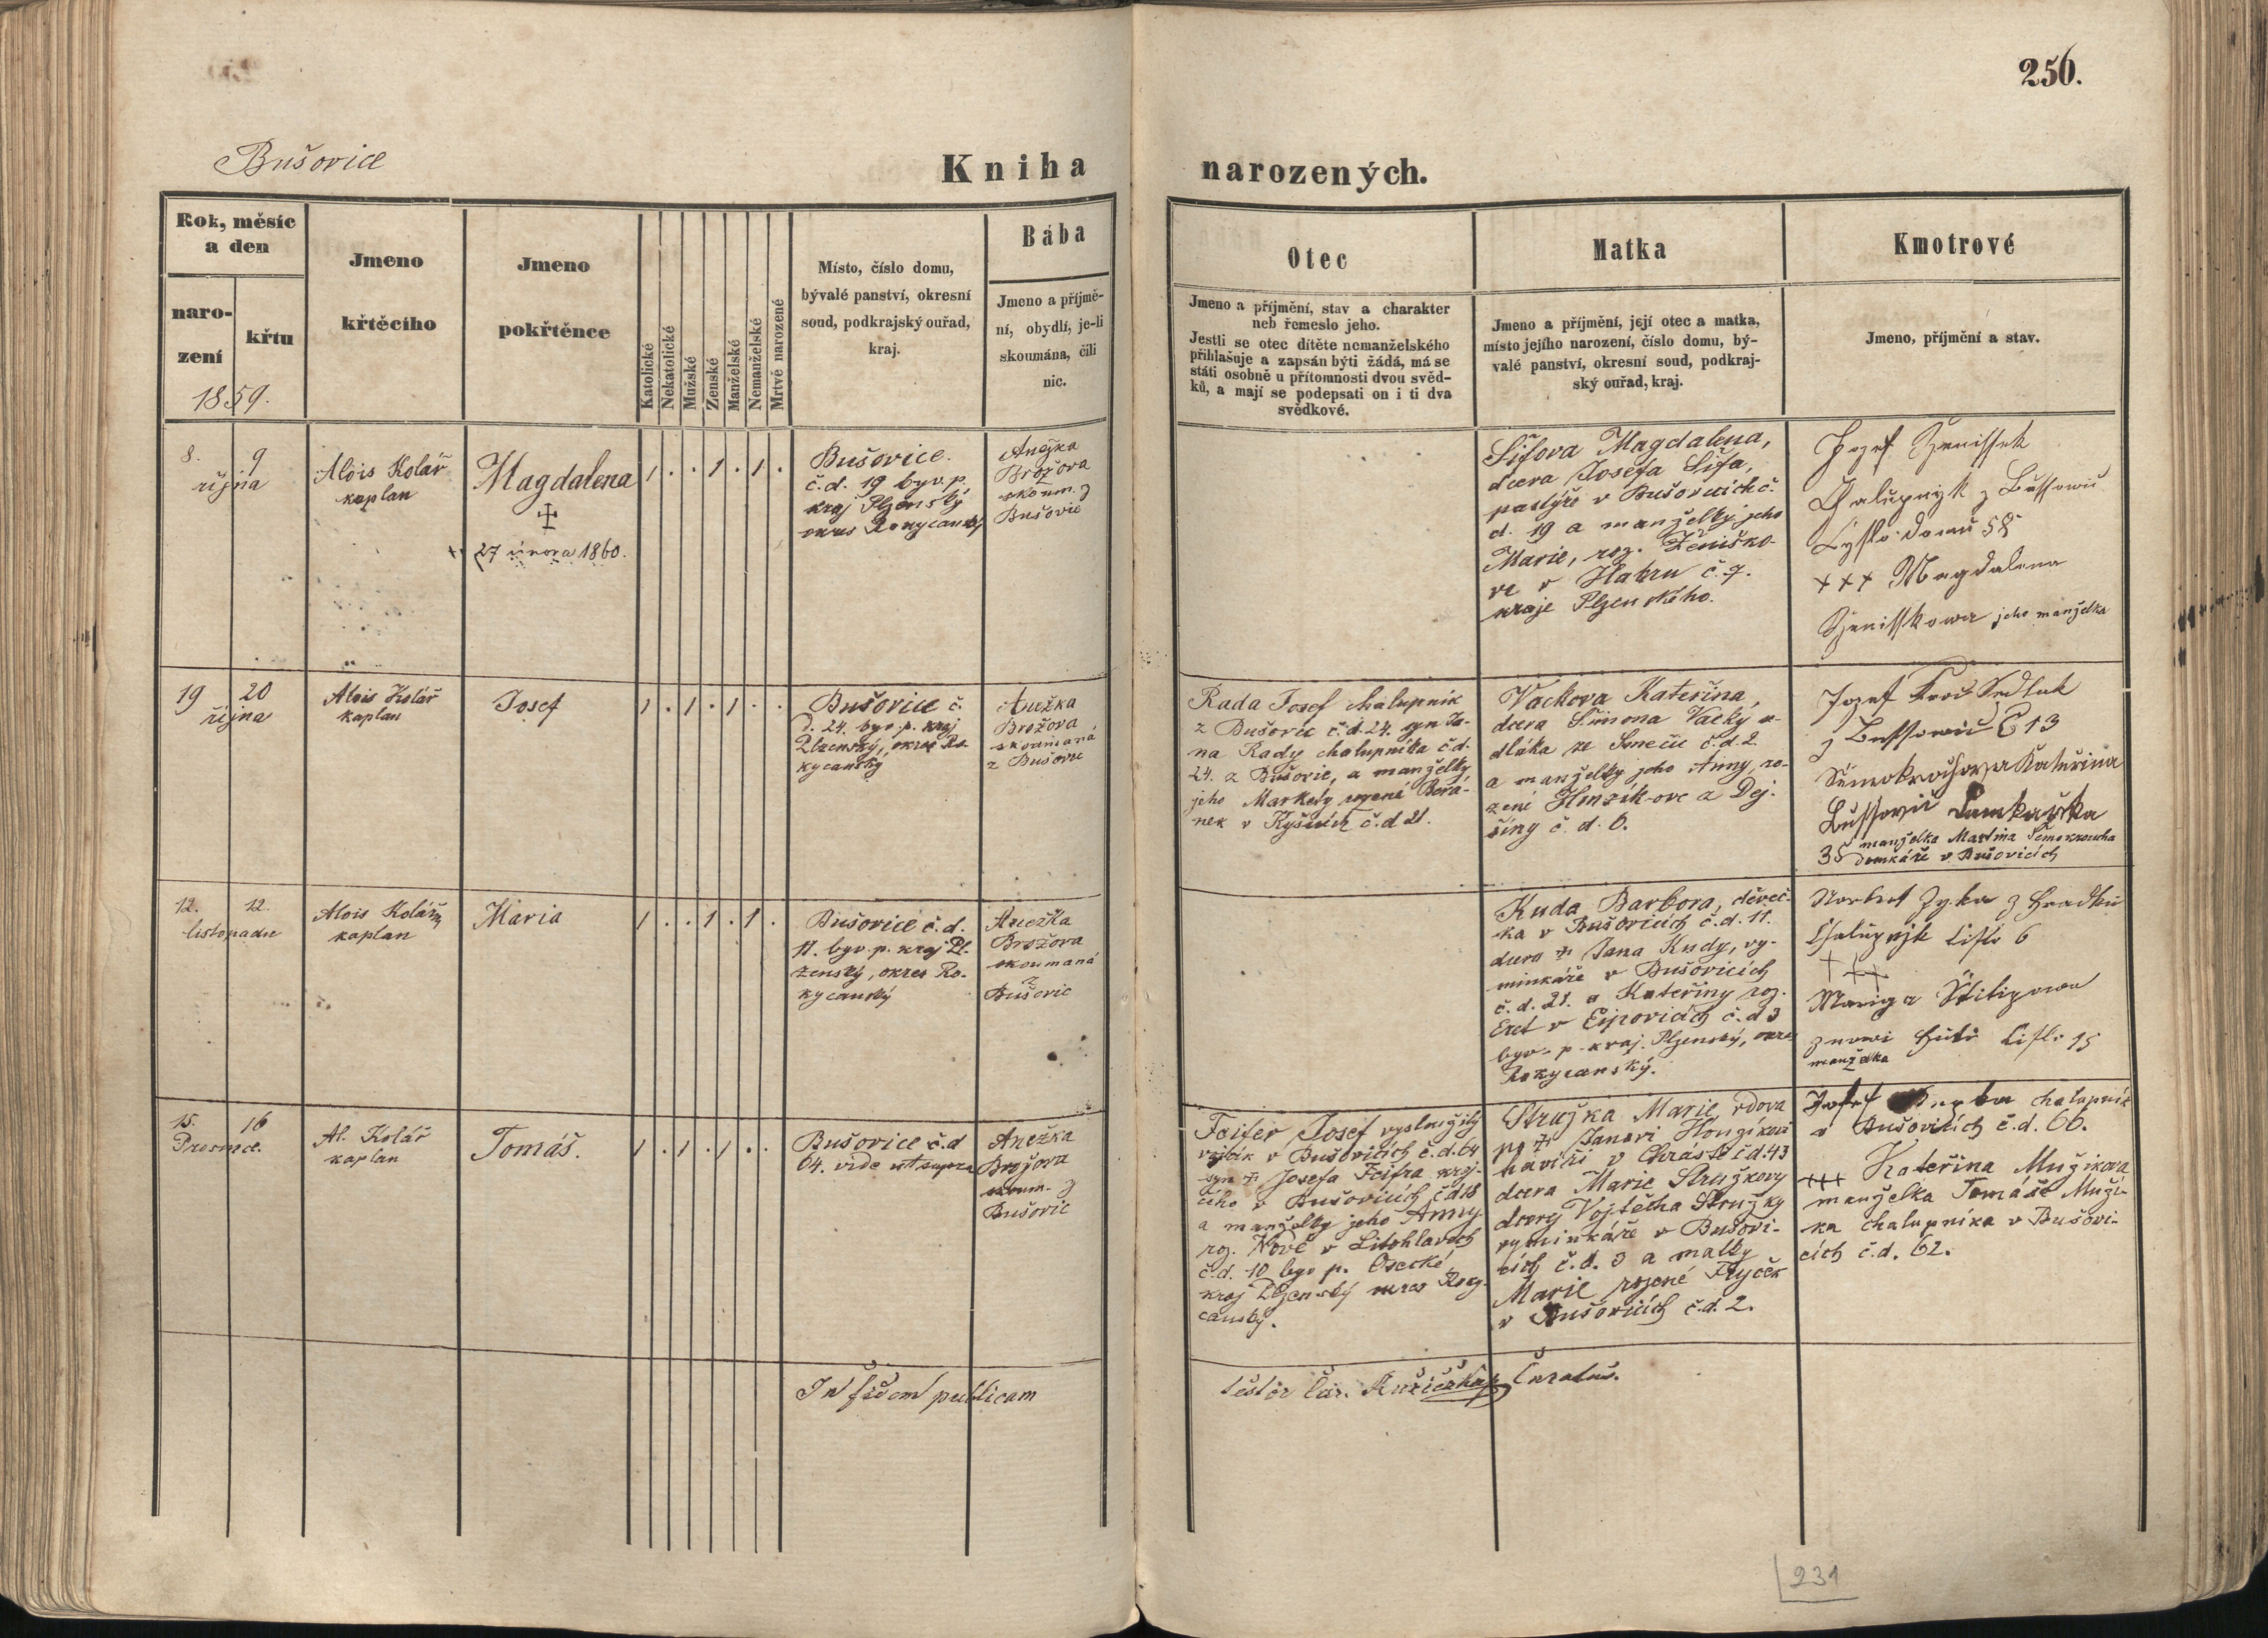 250.
Bušovice
Kniha
narozených.
Rok, měsíc
a den
naro-
zení
křtu
1859.
Jmeno
křtěcího
Jmeno
pokřtěnce
Katolické
Nekatolické
Mužské
Ženské
Manželské
Nemanželské
Mrtvě narozené
Místo, číslo domu,
bývalé panství, okresní
soud, podkrajský ouřad,
kraj.
Bába
Jmeno a příjmě-
ní, obydlí, je-li
skoumána, čili
nic.
Otec
Jmeno a příjmění, stav a charakter
neb řemeslo jeho.
Jestli se otec dítěte nemanželského
přihlašuje a zapsán býti žádá, má se
státi osobně u přítomnosti dvou svěd-
ků, a mají se podepsati on i ti dva
svědkové.
Matka
Jmeno a příjmění, její otec a matka,
místo jejího narození, číslo domu, bý-
valé panství, okresní soud, podkraj-
ský ouřad, kraj.
Kmotrové
Jmeno, příjmění a stav.
8. 9
října
Alois Kolář
kaplan
Magdalena
27 února 1860.
1 . . 1 . 1 .
Bušovice.
č.d. 19 byv. p.
kraj Plzenský
okres Rokycanský
Anežka
Brožova
skoum. z
Bušovic
Šifova Magdalena,
dcera Josefa Šifa,
pastýře v Bušovicích č.
d. 19 a manželky jeho
Marie, roz. Ženiško-
ve v Habru č. 7.
kraje Plzenského.
Jozef Ženissek
Chalupnyk z Bussowic
Cyslo domu 58
+++ Magdalena
Ženisskowa jeho manželka
19 20
října
Alois Kolář
kaplan
Josef
1 . 1 . 1 . .
Bušovice č.
d. 24. byv. p. kraj
Plzenský, okres Ro-
kycanský
Anežka
Brožova
skoumaná
z Bušovic
Rada Josef chalupník
z Bušovic č.d. 24. syn Ja-
na Rady chalupníka č.d.
24. z Bušovic, a manželky
jeho Markety rozené Bera-
nek v Kyšicích č.d 21.
Vackova Kateřina,
dcera Šimona Vacky se-
dláka ze Smečic č.d. 2
a manželky jeho Anny, ro-
zené Honzík-ove z Dej-
šiny č. d. 6.
Jozef Kroc Sedlak
z Bussowic C 13
Semokrochova Kateřina
Bussovic Domkařka
35 manželka Martina Semokroucha
domkáře v Bušovicích
12. 12.
listopadu
Alois Kolář
kaplan
Maria
1 . . 1 . 1 .
Bušovice č.d.
11. byv. p. kraj Pl-
zenský, okres Ro-
kycanský
Anežka
Brožova
skoumaná
z
Bušovic
Kuda Barbora, děveč-
ka v Bušovicích č.d. 11.
dcera + Jana Kudy, vy-
minkáře v Bušovicích
č.d. 21. a Kateřiny roz.
Eret v Ejpovicích č.d 3
byv. p. kraj. Plzenský, okres
Rokycanský.
Norbert Zyka z Hradku
Chalupnjk Cislo 6
+++
Mariga
z nowi Huti Cislo 15
manželka
15. 16
Prosince.
Al. Kolář
kaplan
Tomáš.
1 . 1 . 1 . .
Bušovice č.d
64. vide ut supra
Anežka
Brožova
skoum. z
Bušovic
Feifer Josef vysloužilý
voják v Bušovicích č.d. 64
syn + Josefa Feifra krej-
čího v Bušovicích č.d 18
a manželky jeho Anny
roz. Nové v Litohlavech
č.d. 10 byv p. Osecké,
kraj Plzenský okres Roky-
canský.
Stružka Marie vdova
po + Janovi Honzíkovi
havíři v Chrástě č.d. 43
dcera Marie Stružkovy
dcery Vojtěcha Stružky
vyminkáře v Bušovi-
cích č.d. 3 a matky
Marie rozené Fryček
v Bušovicích č.d. 2.
Josef chalupník
v Bušovicích č.d. 66.
+++ Kateřina Mužikova
manželka Tomáše Muži-
ka chalupníka v Bušovi-
cích č.d. 62.
In fidem publicam
Růžička Curatus.
231